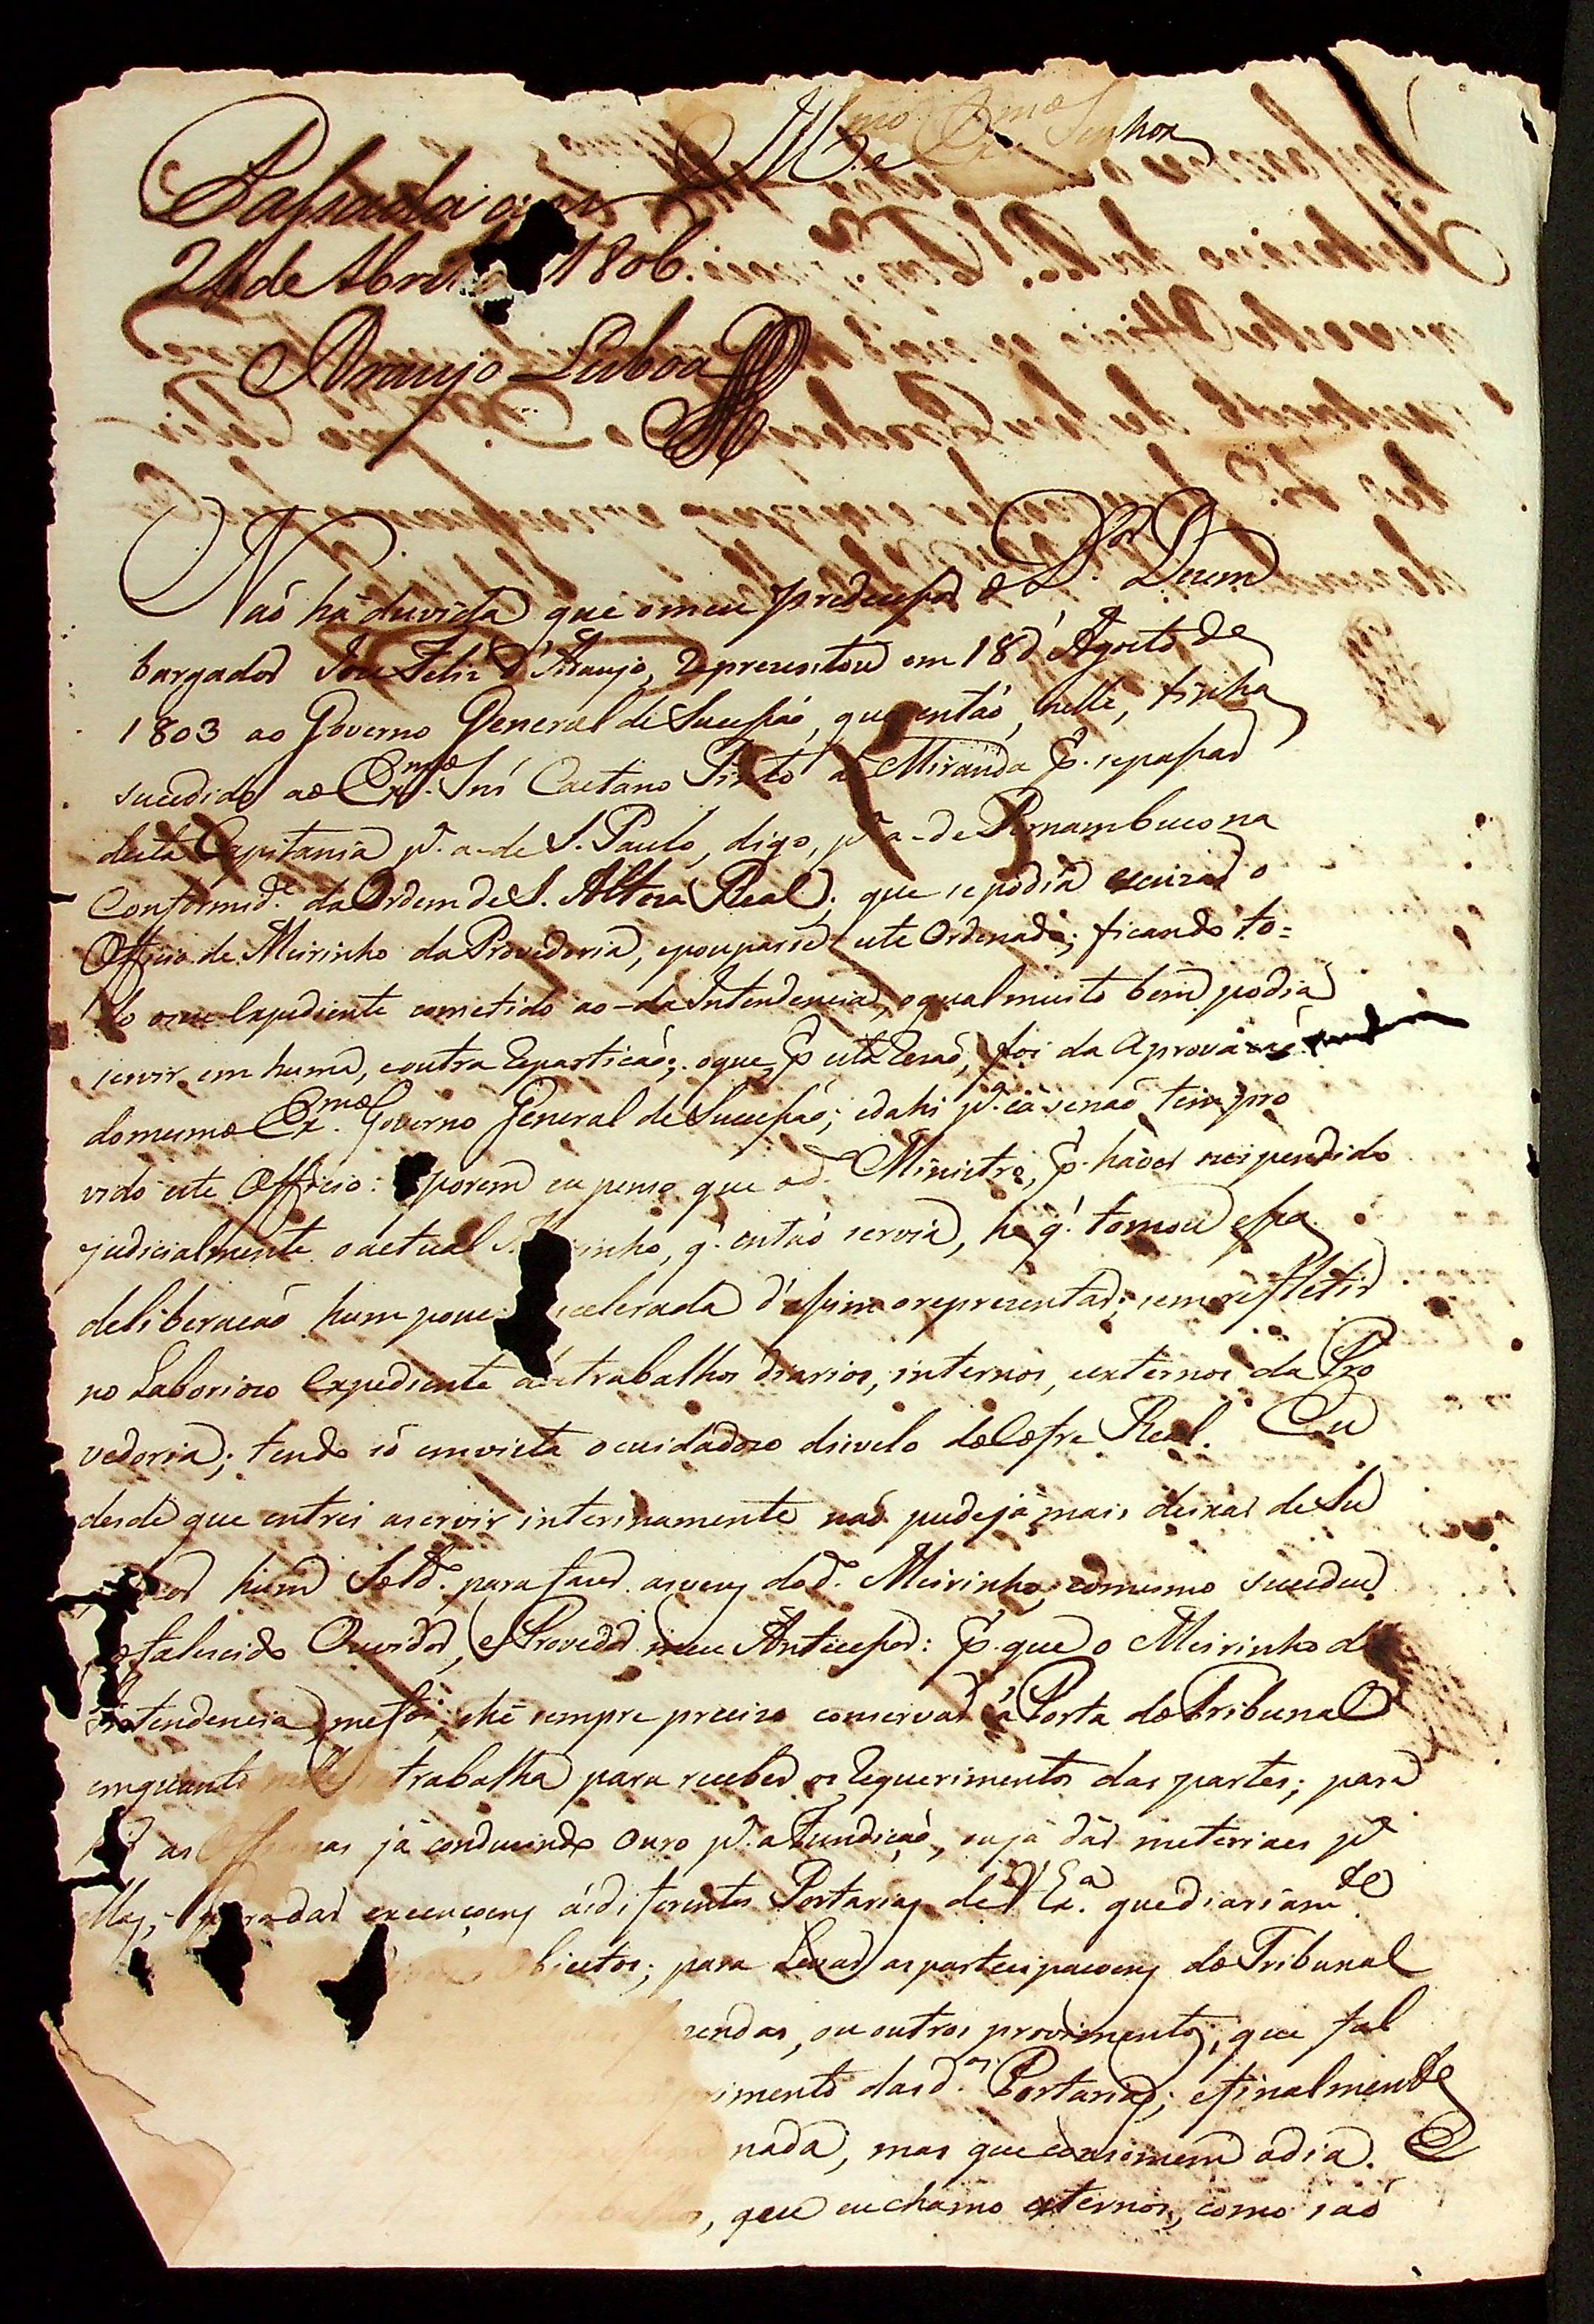 Ill.mo e Ex.mo Senhor
Passada aos
24 de Abril 1806.
Araujo Lisboa
Naõ há duvida que o meu predecessor o D.or Dezem
bargador Joze Feliz d'Araujo, reprezentou em 18 d'Agosto de
1803 ao Governo General de Sucessaõ, que entaõ, nelle, tinha
sucedido ao Ex.mo Snr Caetano Pinto de Miranda P. se passar
desta Capitania p.a a de S. Paulo, digo, p.a a de Pernambuco na
Conformid.e da Ordem de S. Alteza Real; que se podia escuzar o
Officio de Meirinho da Provedoria, e pouparse este Ordenado; ficando to=
do o seu Expediente cometido ao da Intendencia, o qual muito bem podia
servir em huma, e outra Repartiçaõ; o que, p. esta rezaõ, foi da Aprovaçaõ
do mesmo Ex.mo Governo General de Sucessaõ; e dahi p.a cá se naõ tem pro
vido este Officio: porem eu penso que o d.o Ministro, p. haver suspendido
judicialmente o actual inho, q. entaõ servia, he q. tomou essa
deliberaçaõ hum pouc celerada d'assim o reprezentar; sem refletir
no Laboriozo Expediente trabalhos diarios, internos, e externos da Pro
vedoria; tendo só em vista o cuidadozo disvelo do Cofre Real. Eu
desde que entrei a servir interinamente naõ pude já mais deixar de Su
hum Sold.o para fazer as vezes do d.o Meirinho, e o mesmo sucedeu
falecido Ouvidor, e Provedor meu Antecessor: p. que o Meirinho da
Intendencia, me foi, e he sempre precizo conservar á Porta do Tribunal
emquanto nelle se trabalha para receber os Requerimentos das partes; para
as Officinas já conduzindo Ouro p.a a Fundiçaõ, ou já dar materiaes p.a
ellas; para dar execuçoens ás diferentes Portarias de V. Ex.a que diariam.te
objectos; para Levar as participaçoens do Tribunal
zendas, ou outros provimentos, que fal
rimento das d.as Portarias; e finalmente
nada, mas que consomem o dia. E
, que eu chamo externos, como saõ